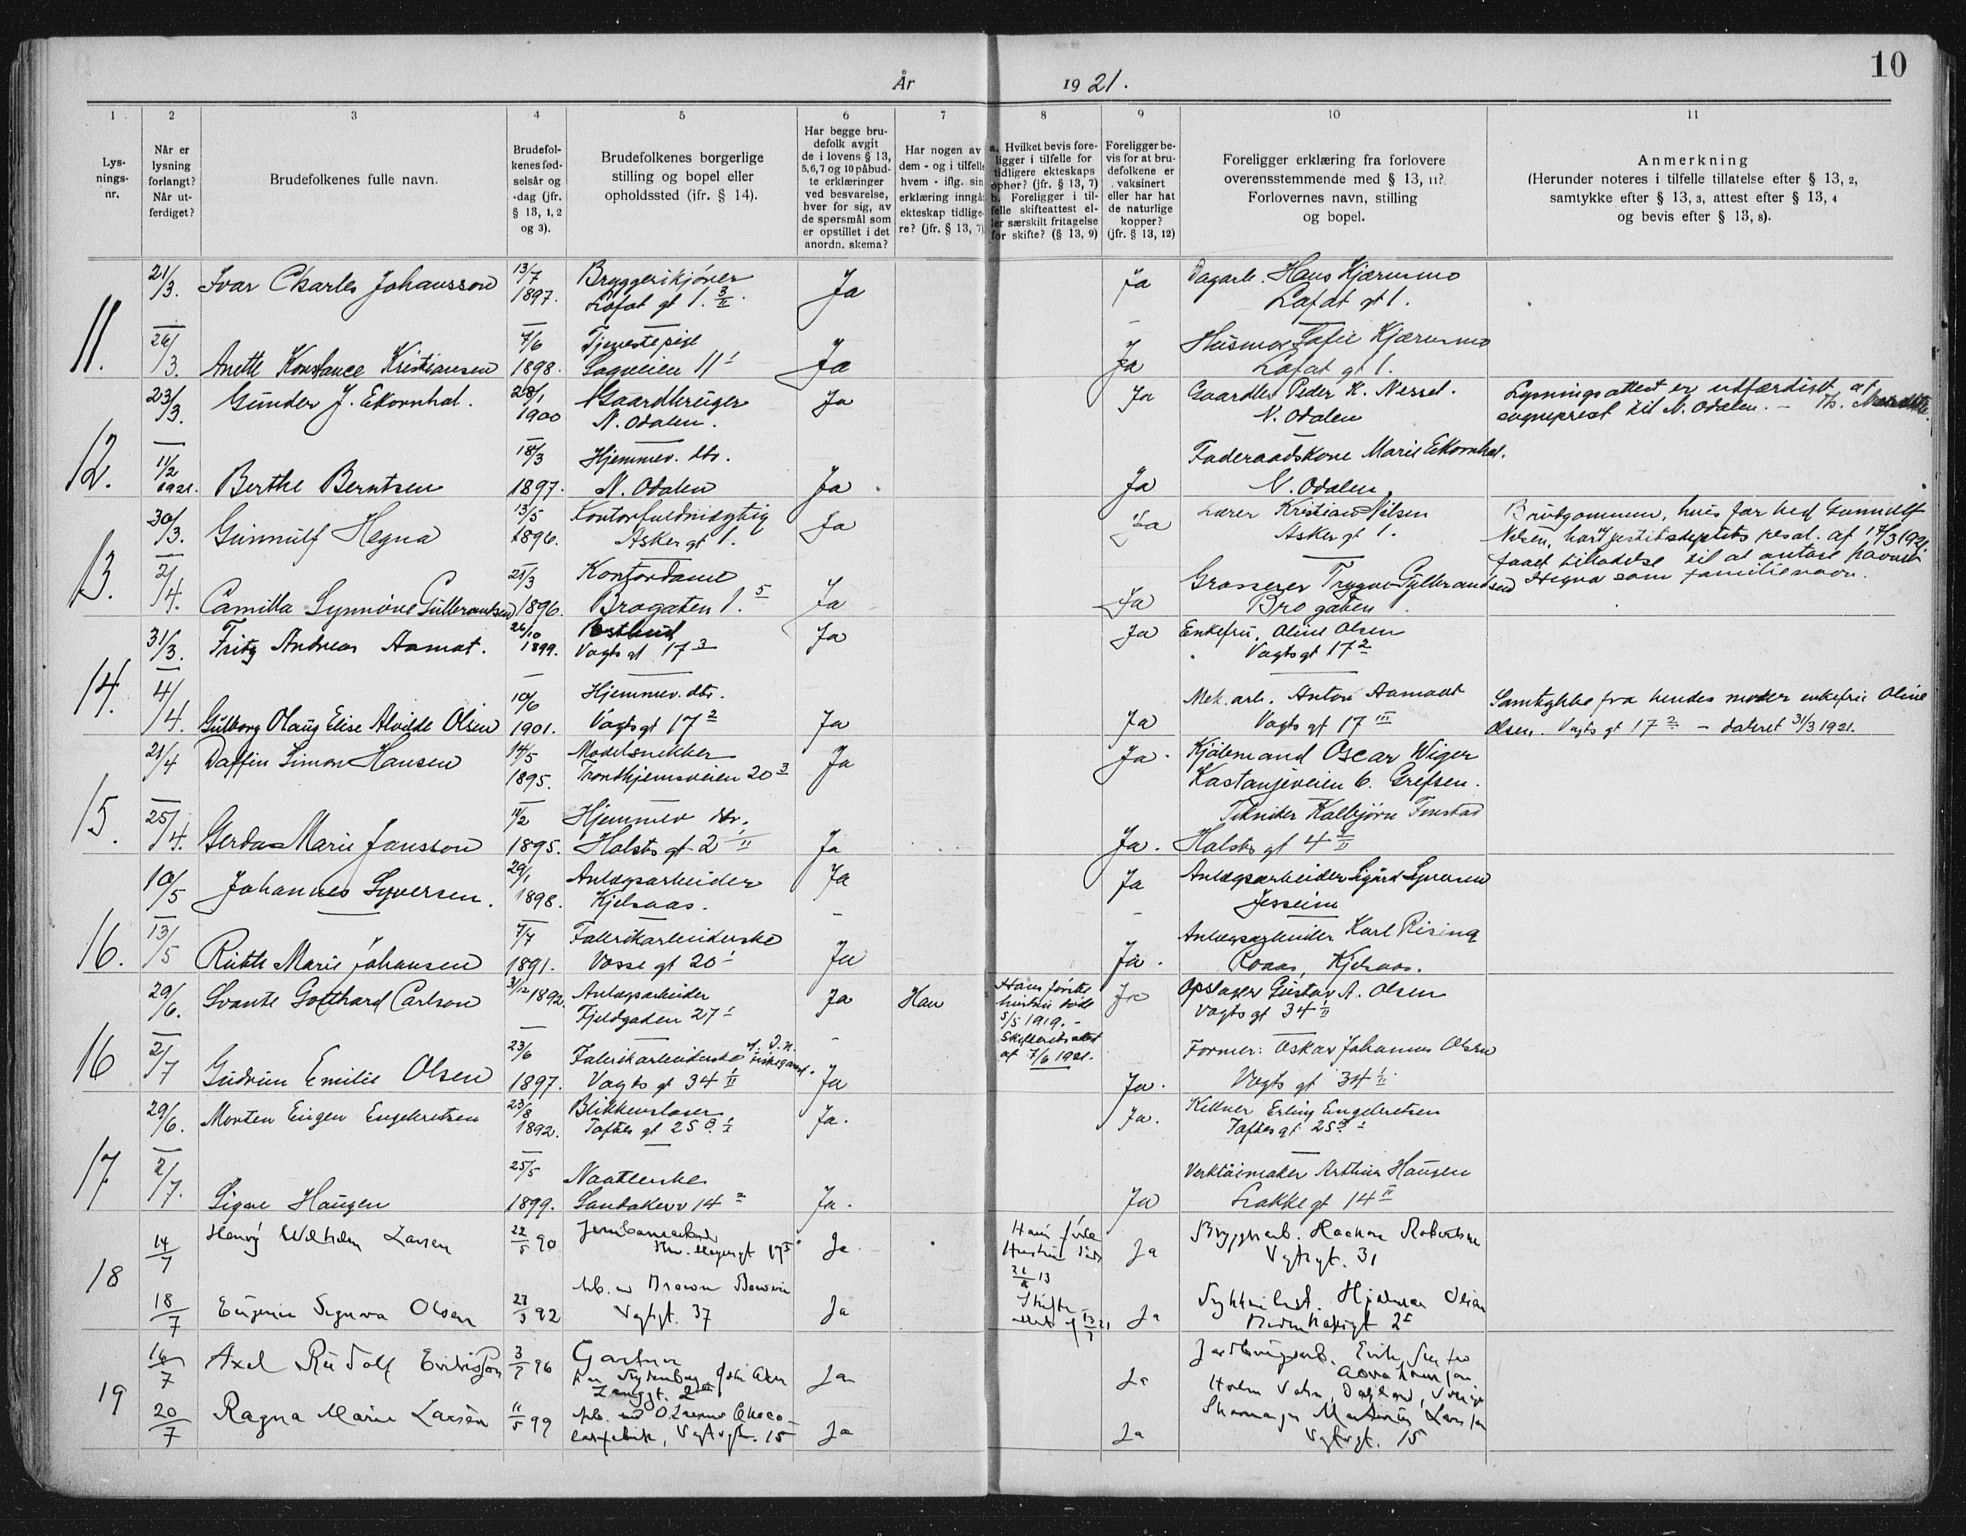 10
År 1921.
1 2 3 4 5 6 7 8 9 10 11
Lysningsnr.
Når er lysning forlangt? Når utferdiget?
Brudefolkenes fulle navn.
Brudefolkenes fødselsår og -dag (jfr. § 13, 1, 2 og 3).
Brudefolkenes borgerlige stilling og bopel eller opholdssted (jfr. § 14).
Har begge brudefolk avgit de i lovens § 13, 5, 6, 7 og 10 påbudte erklæringer ved besvarelse, hver for sig, av de spørsmål som er opstillet i det anordn. skema?
Har nogen av dem - og i tilfelle hvem - iflg. sin erklæring inngå ekteskap tidligere? (jfr. § 13, 7)
a. Hvilket bevis foreligger i tilfelle for tidligere ekteskaps ophør? (jfr. § 13, 7) b. Foreligger i tilfelle skifteattest eller særskilt fritagelse for skifte? (§ 13, 9)
Foreligger bevis for at brudefolkene er vaksinert eller har hat de naturlige kopper? (jfr. § 13, 12)
Foreligger erklæring fra forlovere overensstemmende med § 13, 11? Forlovernes navn, stilling og bopel.
Anmerkning (Herunder noteres i tilfelle tillatelse efter § 13, 2, samtykke efter § 13, 3, attest efter § 13, 4 og bevis efter § 13, 8).
11.
21/3. Ivar Charles Johansson 13/7 1897. Bryggerikjører Lofot gt 1. 3/II. Ja Ja Dagarb. Hans Kjærnsmo
Lofot gt 1.
26/3. Anette Konstance Kristiansen 7/6 1898. Tjenestepige Sagveien 11 Ja Ja Husmor Kjærnsmo
Lofot gt 1.
12.
23/3. Gunder J. Ekornhol. 28/1 1900 Gaardbruger N. Odalen. Ja Ja Gaardbr Peder K. Nesset.
N. Odalen Lysningsattest er utfærdiget af
sogneprest til N. Odalen. -
11/2 1921. Berthe Berntsen 18/3 1897. Hjemmev. dtr. N. Odalen Ja Ja Føderaadskone Marie Ekornhol.
N. Odalen
13.
30/3. Gunnulf Hegna 13/5 1896. Kontorfuldmægtig Asker gt 1. Ja Ja Lærer Kristian Nilsen
Asker gt 1. Brudgommen, hvis far hed Gunnulf
Nilsen, har justitsdeptets resol. af 17/3 1921
faaet tilladelse til at antage navnet
Hegna som familienavn.
2/4. Camilla Synnöve Gulbrandsen 21/3 1896. Kontordame Brogaten 1. 5 Ja Ja Grosserer Trygve Gulbrandsen
Brogaten
14.
31/3. Fritz Andreas Aamot. 26/10 1899. Vogts gt 17 3 Ja Ja Enkefru, Oline Olsen
Vogts gt 17 2
4/4. Gulborg Olaug Elise Alvilde Olsen 10/6 1901. Hjemmev. dtr. Vogts gt 17 2 Ja Ja Mek. arb. Anton Aamodt
Vogts gt 17 III Samtykke fra hendes moder enkefru Oline
Olsen. Vogts gt 17 2 - dateret 31/3 1921.
15.
21/4 Daffin Simon Hansen 14/5 1895. Modelsnekker Trondhjemsveien 20 3 Ja Ja. Kjölemand Oscar Wiger
Kastanjeveien 6. Grefsen.
25/4. Gerda Marie Jansson 11/2 1895. Hjemmev dtr. Holsts gt 2 II Ja Ja. Tekniker Kolbjørn Finstad
Holsts gt 4 II
16.
10/5 Johannes Syversen. 29/1 1898. Anlægsarbeider Kjelsaas. Ja Ja Anlægsarbeider Sigurd Syversen
Jessheim
13/5 Ruth Marie Johansen 7/7 1891. Fabrikarbeiderske Vosse gt 20 Ja Ja. Anlægsarbeider Karl Rising
Roaas, Kjelsaas.
16
29/6. Svante Gotthard Carlson 31/12 1892. Anlægsarbeider Fjeldgaden 27 Ja Han Hans første
hustru døde
5/5 1919. -
Skifterets attest
af 7/6 1921. Ja Opslager Gustav A. Olsen
Vogts gt 34 II
2/7 Gudrun Emilie Olsen 23/6 1897. Fabrikarbeiderske Vogts gt 34 II Ja Ja. Former: Oskar Johannes Olsen
Vogts gt 34 II
17
29/6. Morten Eugen Engebretsen 23/8 1892. Blikkenslager Toftes gt 25 B Ja. Ja. Kellner Erling Engebretsen
Toftes gt 25 B
2/7. Signe Haugen 25/5 1899. Naatlerske Sandakerv 14 2 Ja. Ja Verktöimaker Arthur Haugen
Frakke gt 14 II
18
14/7 Henry Wilhelm Larsen 22/5 90 Jernbanearbeider Hm. Meyersgt 17 Ja Hans første
Hustru døde
13
Skifte
13/7 21 Ja Bryggearb. Haakon Robertsen
Vgtsgt. 31
18/7 Eugenie Signora Olsen 27/3 92 Arb. Vgtsgt. 37 Ja Ja Hjalmar Olsen
19
16/7 Axel Rudolf Eriksson 3/7 96 Gartner Ja Ja Jordbrugsarb. Erik
20/7 Ragna Marie Larsen 11/5 99 Arb. ved Choco-
ladefabrik, Vgtsgt. 15 Ja Ja Skomager Martinius Larsen
Vgtsgt. 15